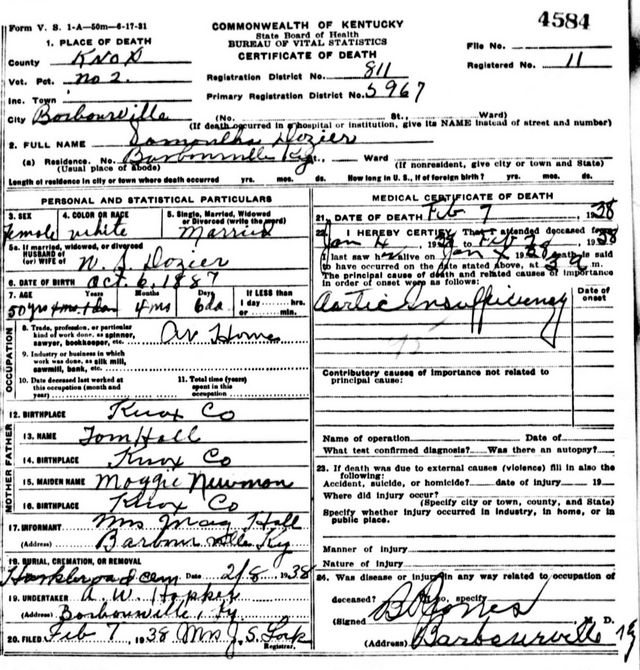 Form V. S. 1-A—50m—6-17-31
4584
COMMONWEALTH OF KENTUCKY
State Board of Health
BUREAU OF VITAL STATISTICS
CERTIFICATE OF DEATH
File No.
Registered No. 11
1. PLACE OF DEATH
County Knox
Vot. Pct. no 2.
Inc. Town
City Barbourville
Registration District No. 811
Primary Registration District No. 5967
(No. St., Ward)
(If death occurred in a hospital or institution, give its NAME instead of street and number)
2. FULL NAME Samantha Dozier
(a) Residence. No. Barbourville Ky St., Ward
(Usual place of abode) (If nonresident, give city or town and State)
Length of residence in city or town where death occurred yrs. mos. ds. How long in U. S., if of foreign birth? yrs. mos. ds.
PERSONAL AND STATISTICAL PARTICULARS
3. SEX 4. COLOR OR RACE 5. Single, Married, Widowed or Divorced (write the word)
female white Married
5a. If married, widowed, or divorced
HUSBAND of
(or) WIFE of W. S. Dozier
6. DATE OF BIRTH Oct. 6, 1887
7. AGE Years Months Days If LESS than
1 day hrs.
or min.
50 yrs 4 ms 6 da
OCCUPATION
8. Trade, profession, or particular
kind of work done, as spinner,
sawyer, bookkeeper, etc. At Home
9. Industry or business in which
work was done, as silk mill,
sawmill, bank, etc.
10. Date deceased last worked at
this occupation (month and
year)
11. Total time (years)
spent in this
occupation
12. BIRTHPLACE Knox Co
FATHER
13. NAME Tom Hall
14. BIRTHPLACE Knox Co
MOTHER
15. MAIDEN NAME Maggie Newman
16. BIRTHPLACE Knox Co
17. INFORMANT Mrs Hall
(Address) Barbourville Ky
18. BURIAL, CREMATION, OR REMOVAL
cem Date 2/8 1938
19. UNDERTAKER A. W. Hopper
(Address) Barbourville, Ky.
20. FILED Feb 7, 1938 Mrs J. S.
Registrar.
MEDICAL CERTIFICATE OF DEATH
21. DATE OF DEATH Feb 7, 1938
22. I HEREBY CERTIFY, That I attended deceased from
Jan 4, 19 to Feb 1938
I last saw h alive on Jan 19 death is said
to have occurred on the date stated above, at m.
The principal cause of death and related causes of importance
in order of onset were as follows:
Date of
onset
Aortic Insufficiency
Contributory causes of importance not related to
principal cause:
Name of operation Date of
What test confirmed diagnosis? Was there an autopsy?
23. If death was due to external causes (violence) fill in also the
following:
Accident, suicide, or homicide? date of injury 19
Where did injury occur?
(Specify city or town, county, and State)
Specify whether injury occurred in industry, in home, or in
public place.
Manner of injury
Nature of injury
24. Was disease or injury in any way related to occupation of
deceased? If so, specify
(Signed) Jones M. D.
(Address) Barbourville Ky